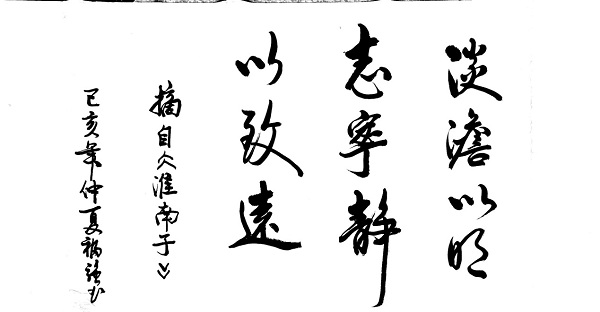 淡澹以明
志寧静
以致遠
摘自《淮南子》
己亥年仲夏书